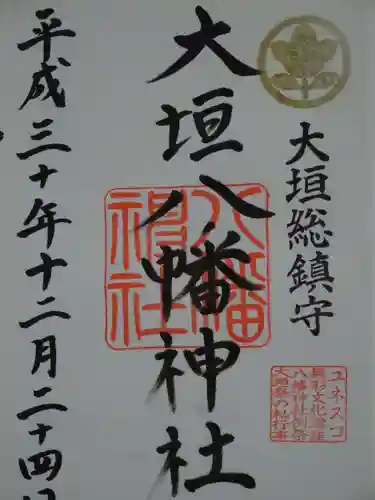 大垣総鎮守
ユネスコ
無形文化遺産
八幡神社例祭
大垣祭の軕行事
大垣八幡神社
八幡
神社
平成三十年十二月二十四日